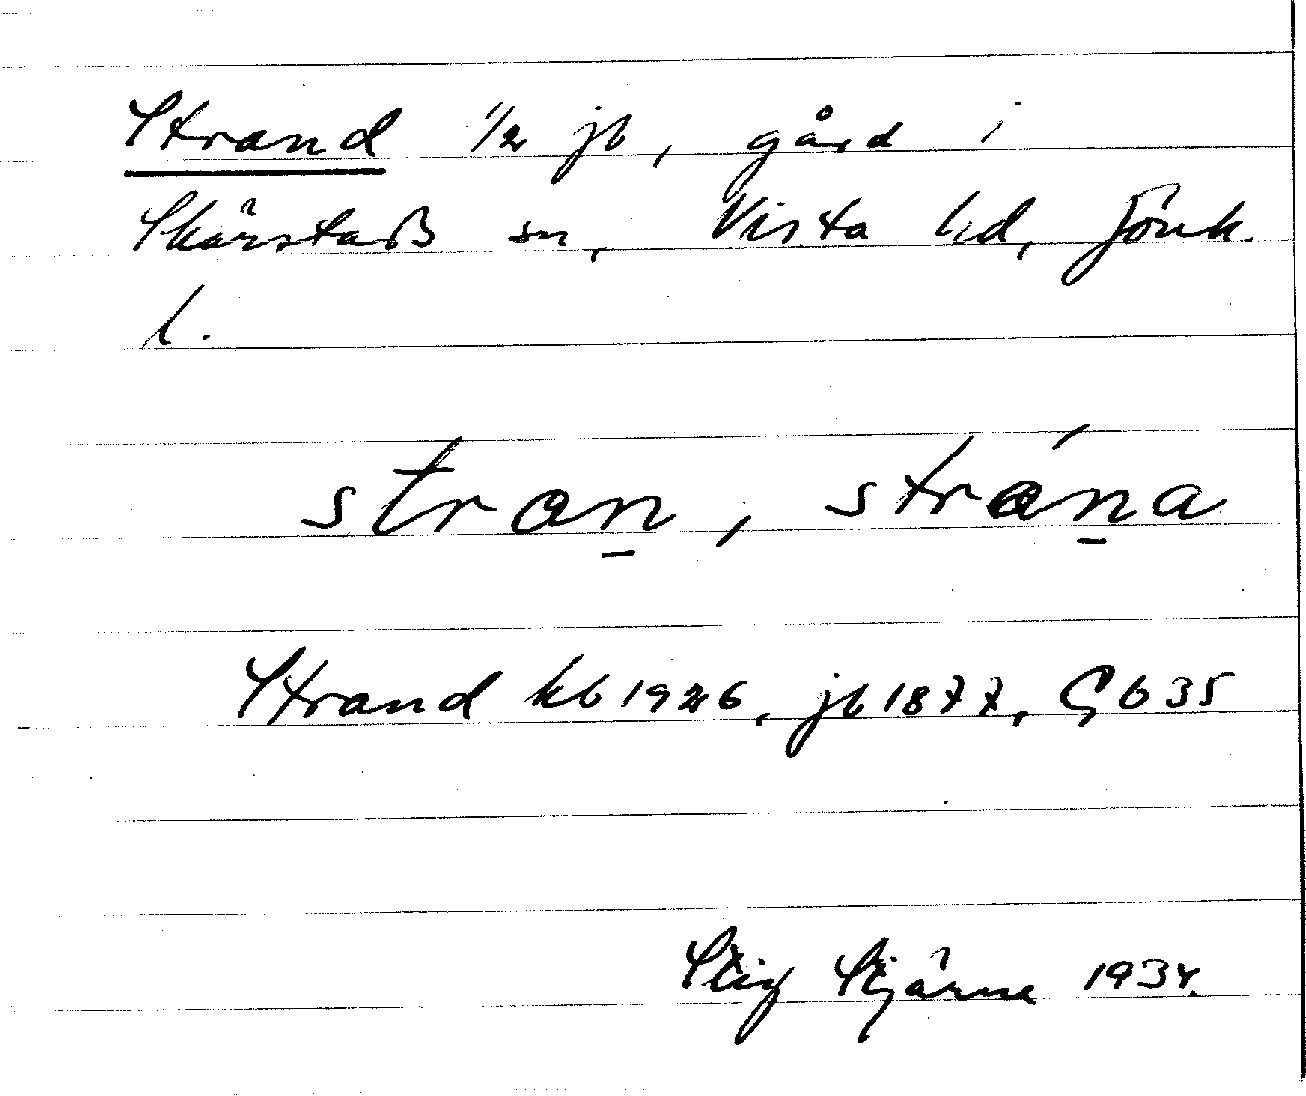 Strand 1/2 jb, gård i
Skärstads sn, Vista hd, Jönk.
l.
stran̲, strán̲a
Strand kb 1926, jb 1877, Gb 35
Stig Stjärne 1934.